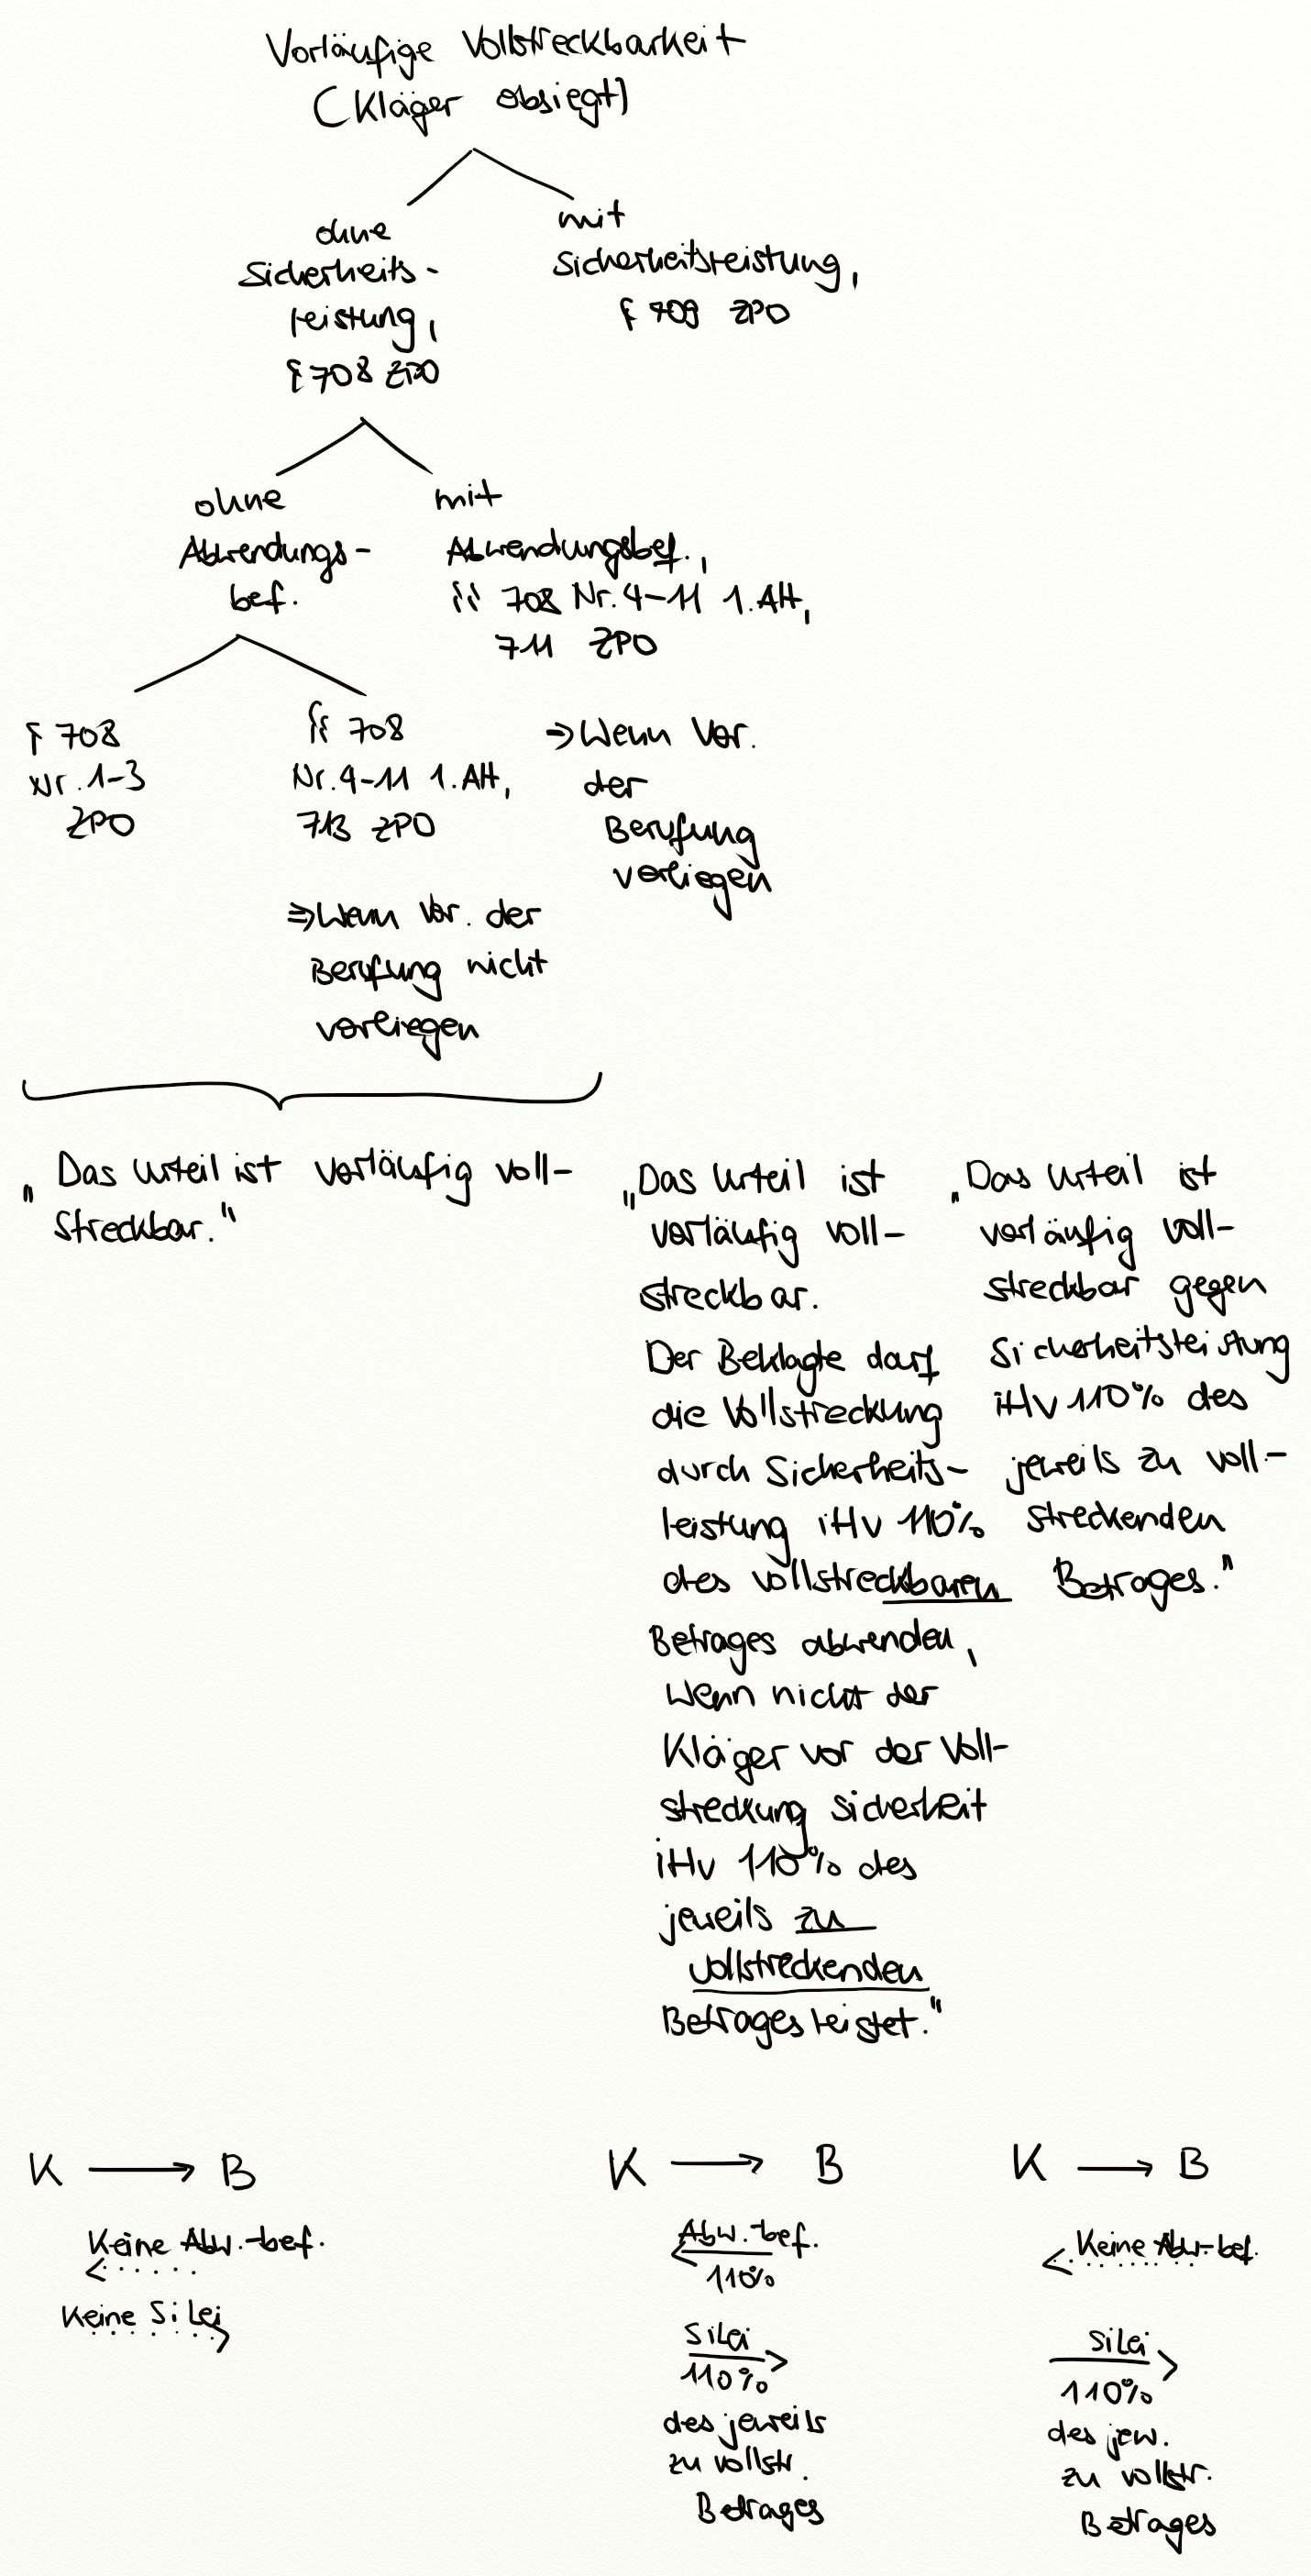 Vorläufige Vollstreckbarkeit
(Kläger obsiegt)
ohne
Sicherheits-
leistung,
§ 708 ZPO
mit
Sicherheitsleistung,
§ 709 ZPO
ohne
Abwendungs-
bef.
mit
Abwendungsbef.,
§§ 708 Nr. 4-11 1. Alt,
711 ZPO
§ 708
Nr. 1-3
ZPO
§§ 708
Nr. 4-11 1. Alt,
713 ZPO
⇒ Wenn Vor. der
Berufung nicht
vorliegen
⇒ Wenn Vor.
der
Berufung
vorliegen
„Das Urteil ist vorläufig voll-
streckbar."
„Das Urteil ist
vorläufig voll-
streckbar.
Der Beklagte darf
die Vollstreckung
durch Sicherheits-
leistung iHv 110%
des vollstreckbaren
Betrages abwenden,
wenn nicht der
Kläger vor der Voll-
streckung Sicherheit
iHv 110% des
jeweils zu
vollstreckenden
Betrages leistet."
„Das Urteil ist
vorläufig voll-
streckbar gegen
Sicherheitsleistung
iHv 110% des
jeweils zu voll-
streckenden
Betrages."
K → B
Keine Abw.-bef.
Keine SiLei
K → B
Abw.-bef.
110%
SiLei
110%
des jeweils
zu vollstr.
Betrages
K → B
Keine Abw-bef.
SiLei
110%
des jew.
zu vollstr.
Betrages